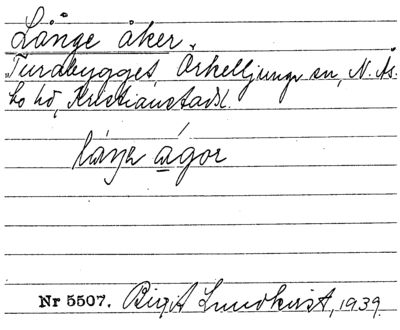 Långe åker.
Turabygget Örkelljunga sn, N. Ås-
bo hd, Kristianstads l.
ágor
Nr 5507. Birgit Lundkvist, 1939.